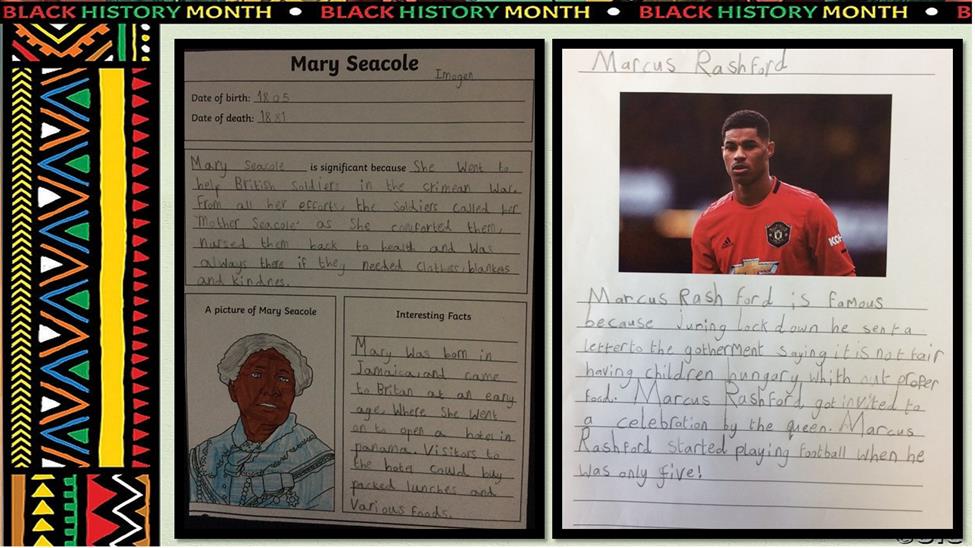 BLACK HISTORY MONTH • BLACK HISTORY MONTH • BLACK HISTORY MONTH • B
Mary Seacole
Imogen
Date of birth: 1805
Date of death: 1881
Mary Seacole is significant because She went to
help British Soldiers in the crimean war.
From all her efforts, the Soldiers called her
'Mother Seacole' as She comforted them,
nursed them back to health and was
always there if they needed clothes, blankets
and kindnes.
A picture of Mary Seacole
Interesting Facts
Mary was born in
Jamaica and came
to Britan at an early
age. Where She went
on to open a hotel in
panama. Visitors to
the hotel could buy
packed lunches and
Various foods.
Marcus Rashford
Marcus Rash ford is famous
because during lock down he sent a
letter to the gotherment saying it is not fair
having children hungary whith out proper
food. Marcus Rashford, got invited to
a celebration by the queen. Marcus
Rashford started playing football when he
was only five!